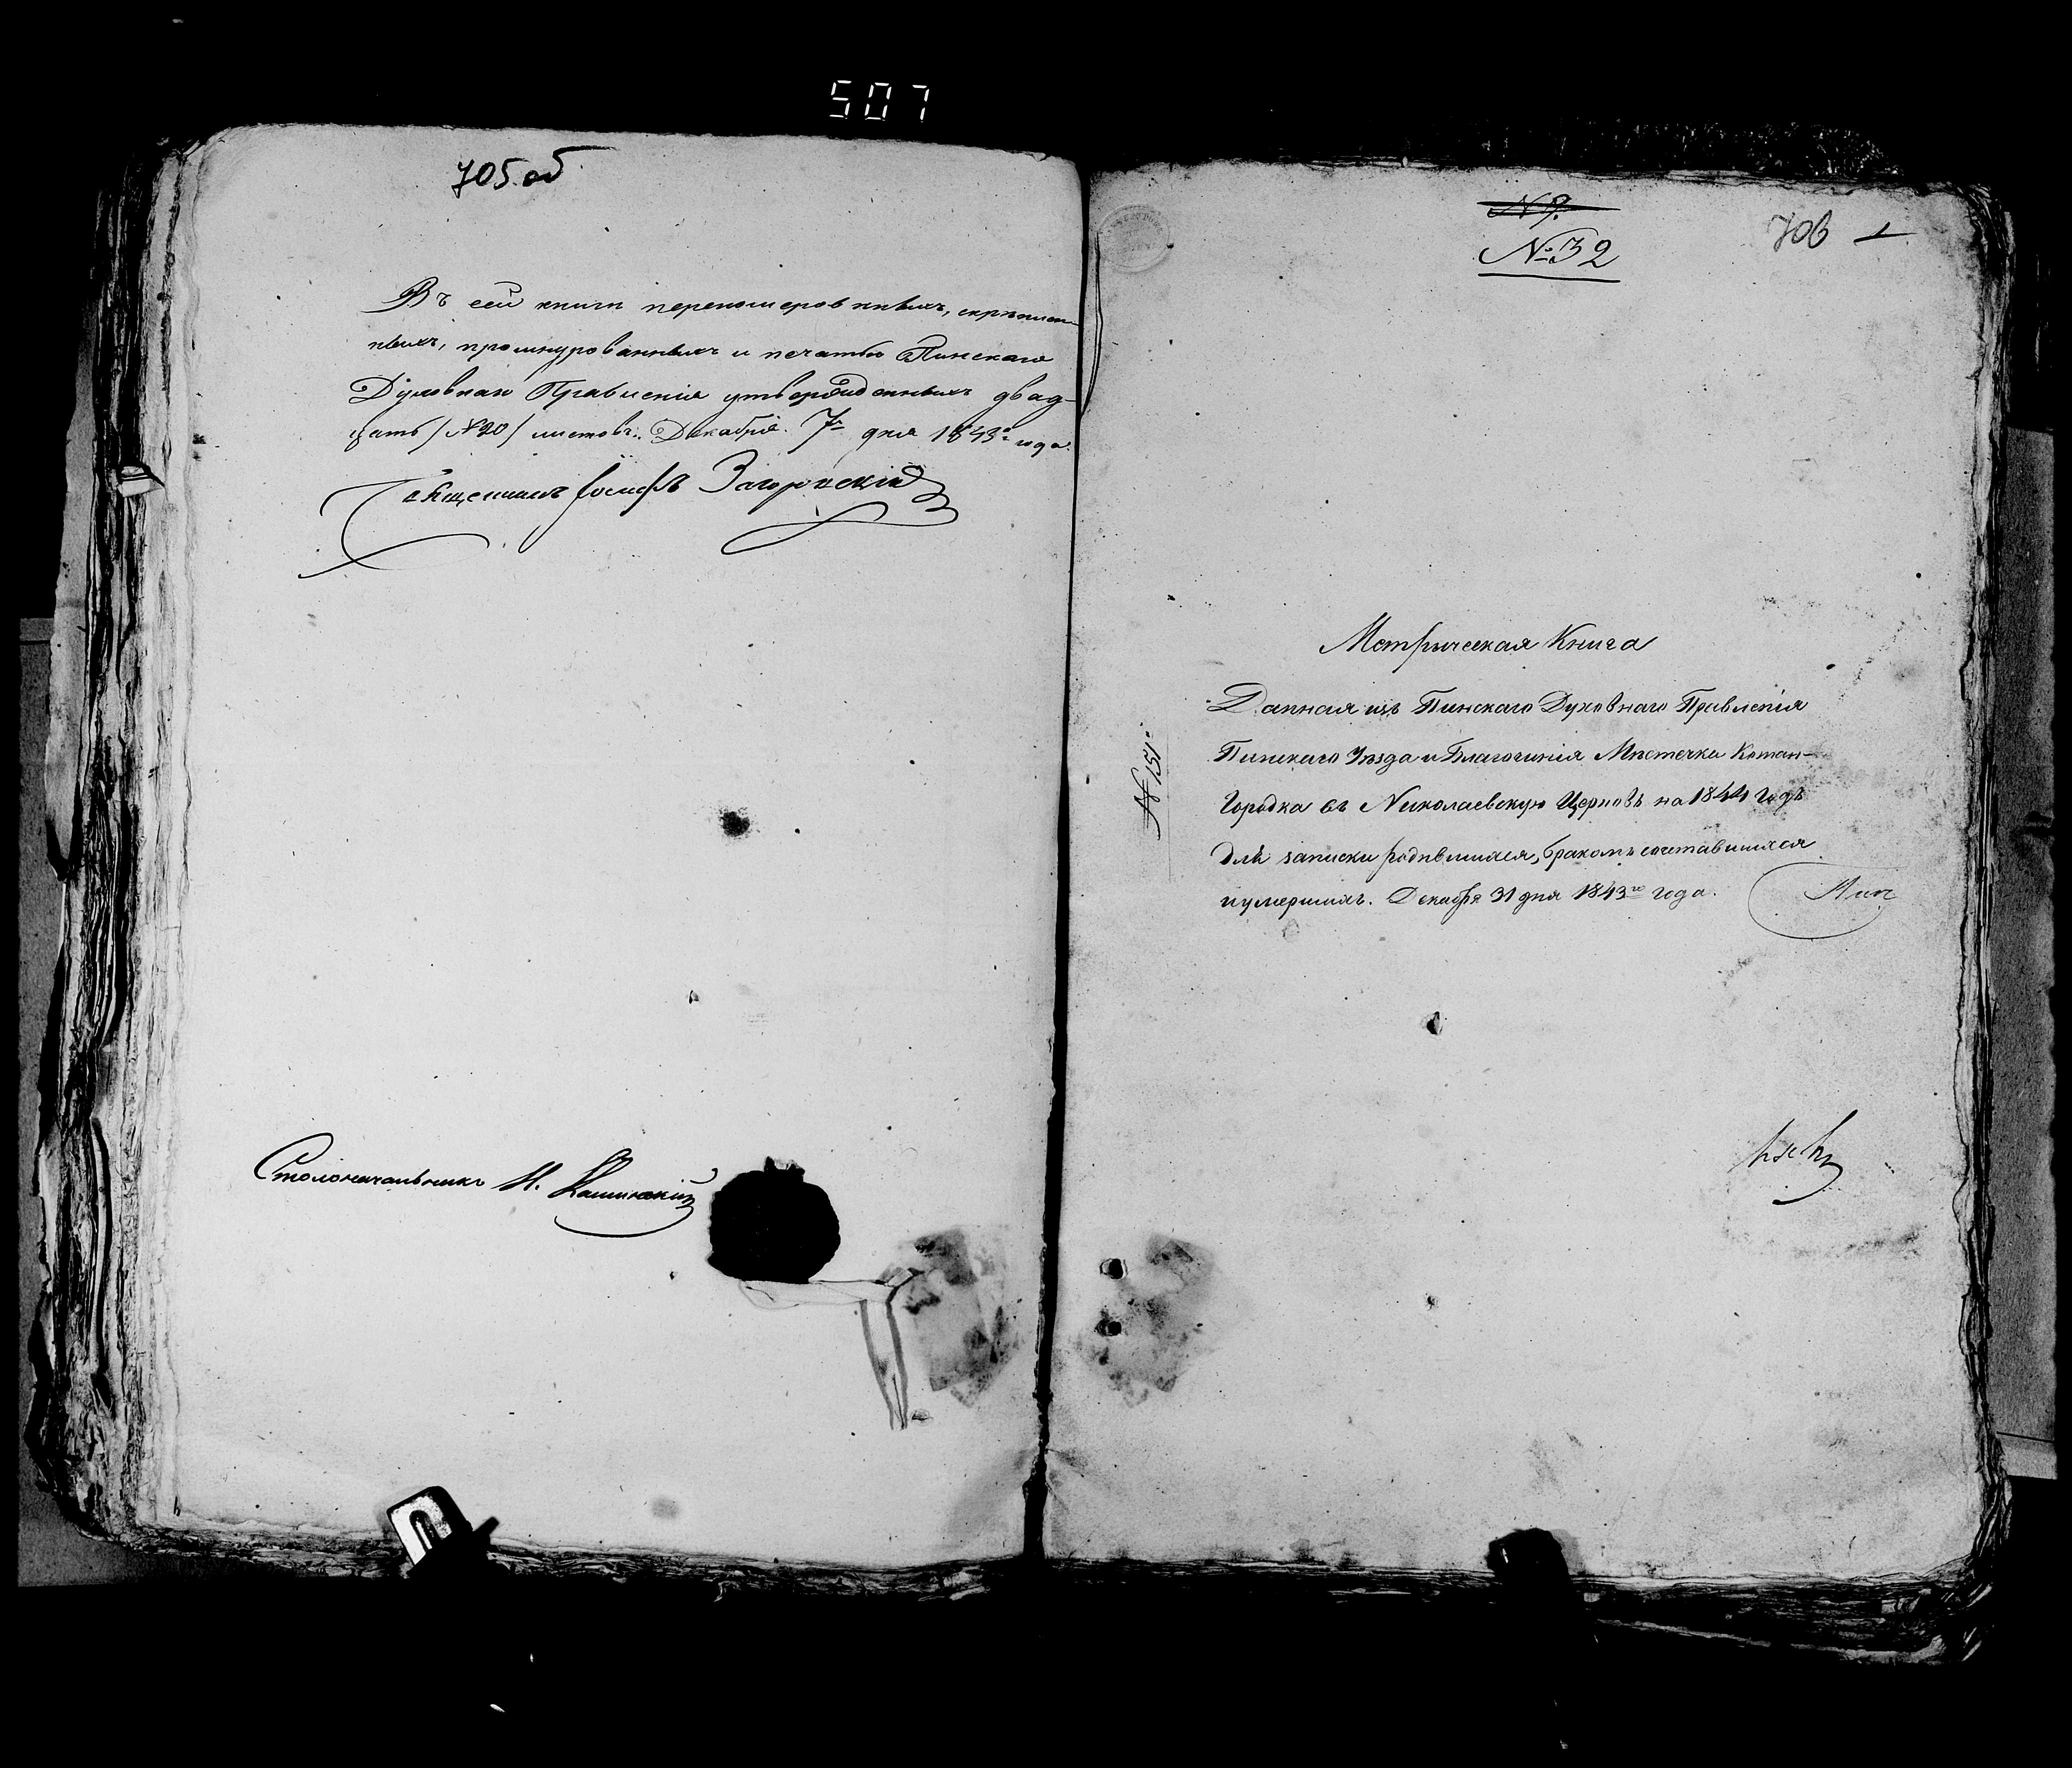 507
705 об
Въ сей книги перономерованныхъ, скрѣплен-
ныхъ, прошнурованныхъ и печатью Пинскаго
Духовнаго Правленія утвержденныхъ двад-
цать /№ 20/ листовъ. Декабря 7 дня 1843го года.
Священникъ Іосифъ Загоровскій
Столоначальникъ
№ 32
706 1
Метрическая Книга
Данная изъ Пинскаго Духовнаго Правленія
Пинскаго Уѣзда и Благочинія Мѣстечка Кожан-
Городка въ Николаевскую Церковь на 1844 годъ
для записки родившихся, бракомъ сочетавшихся
и умершихъ. Декабря 31 дня 1843го года.
№ 151